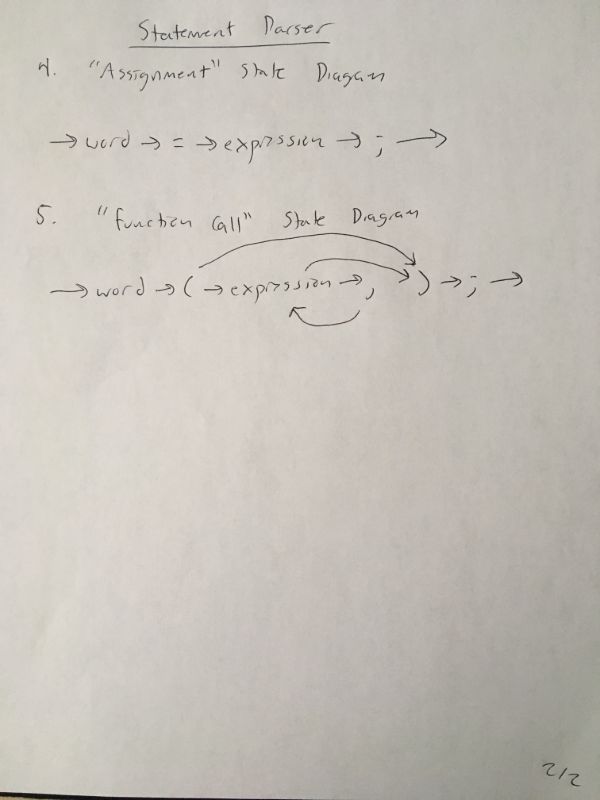 Statement Parser
4. "Assignment" State Diagram
→ word → = → expression → ; →
5. "Function Call" State Diagram
→ word → ( → expression → , → ) → ; →
2/2